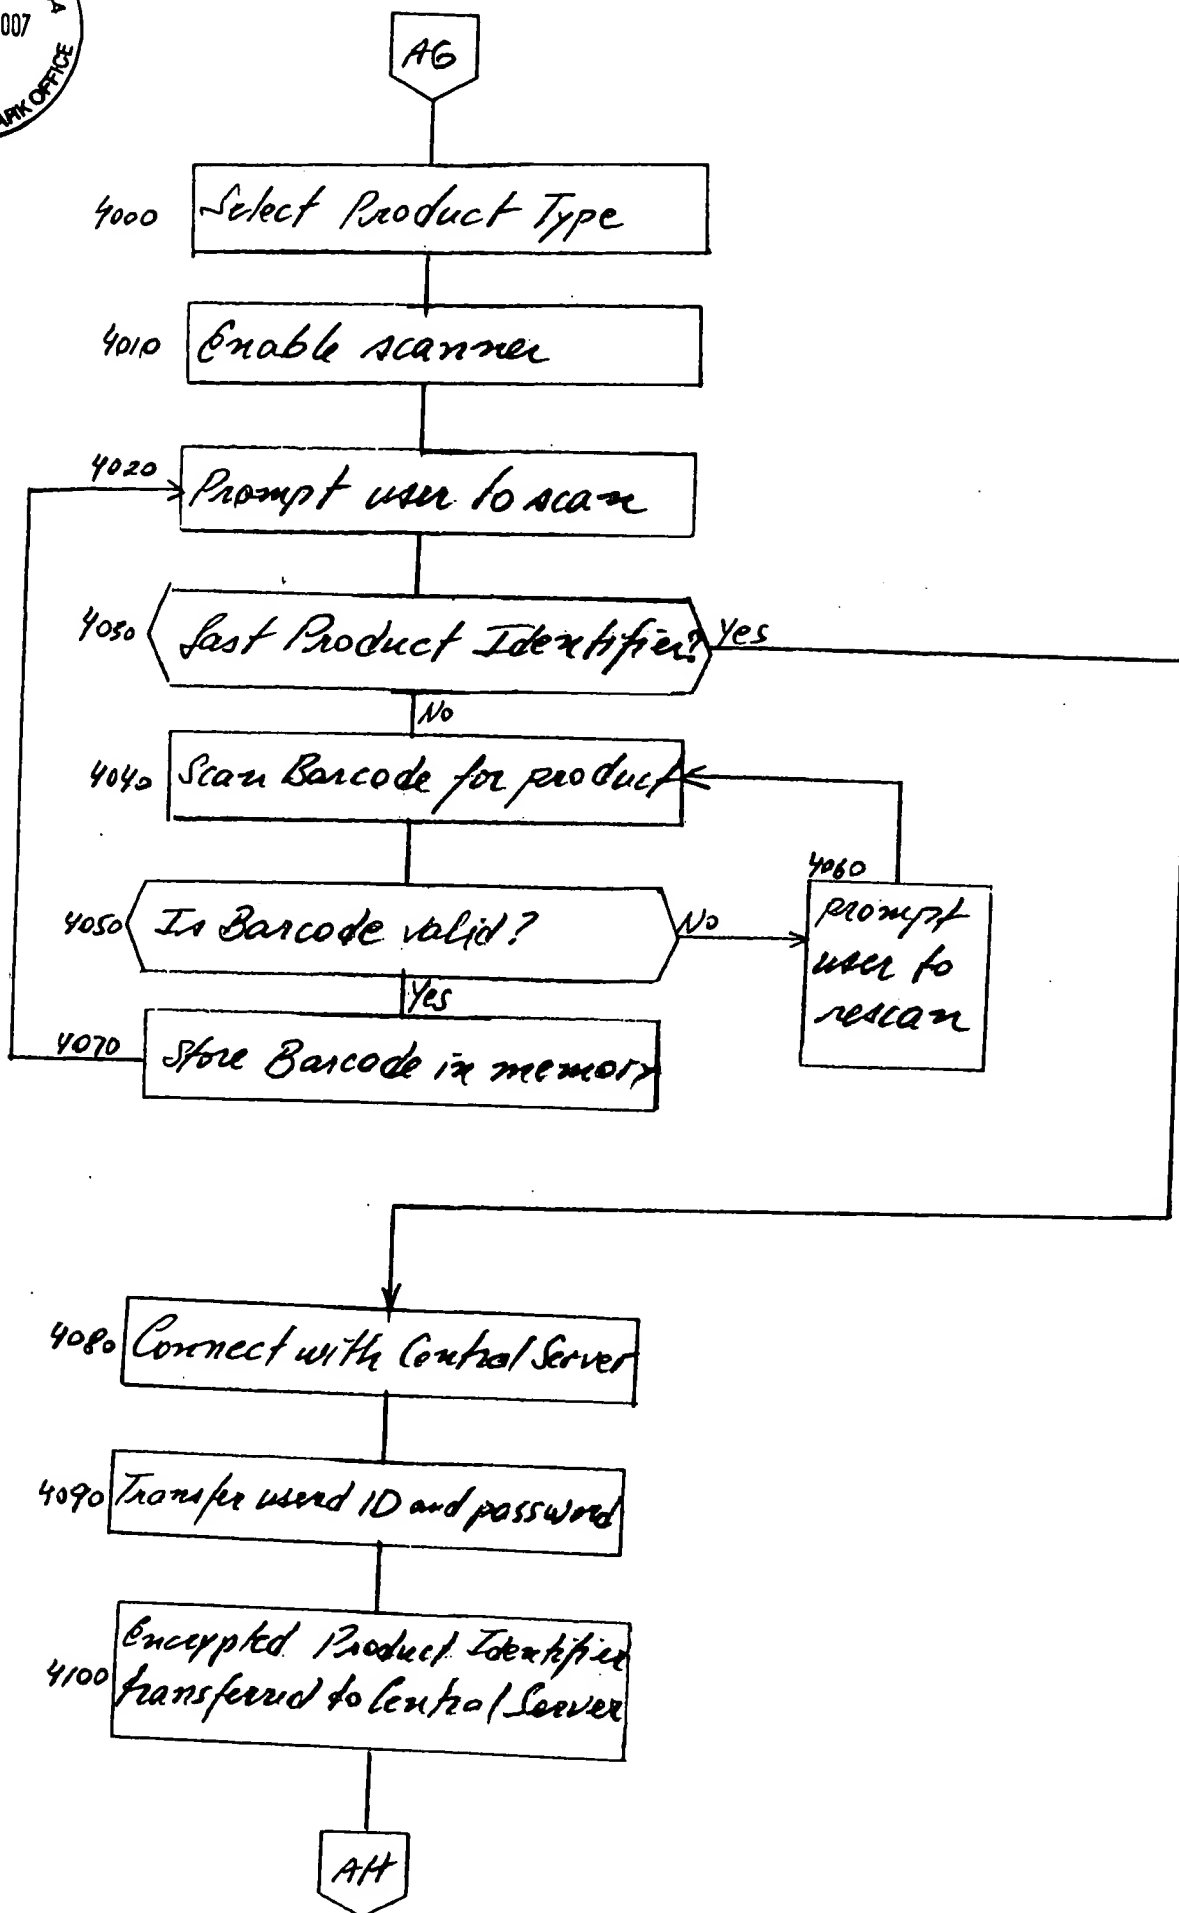 007
A
ARK OFFICE
AG
4000 Select Product Type
4010 Enable scanner
4020
Prompt user to scan
4030 Last Product Identifier? Yes
No
4040 Scan Barcode for product
4060
4050 Is Barcode valid? No
prompt
user to
rescan
Yes
4070 Store Barcode in memory
4080 Connect with Central Server
4090 Transfer userd ID and password
4100 Encrypted Product Identifier
transferred to Central Server
AH